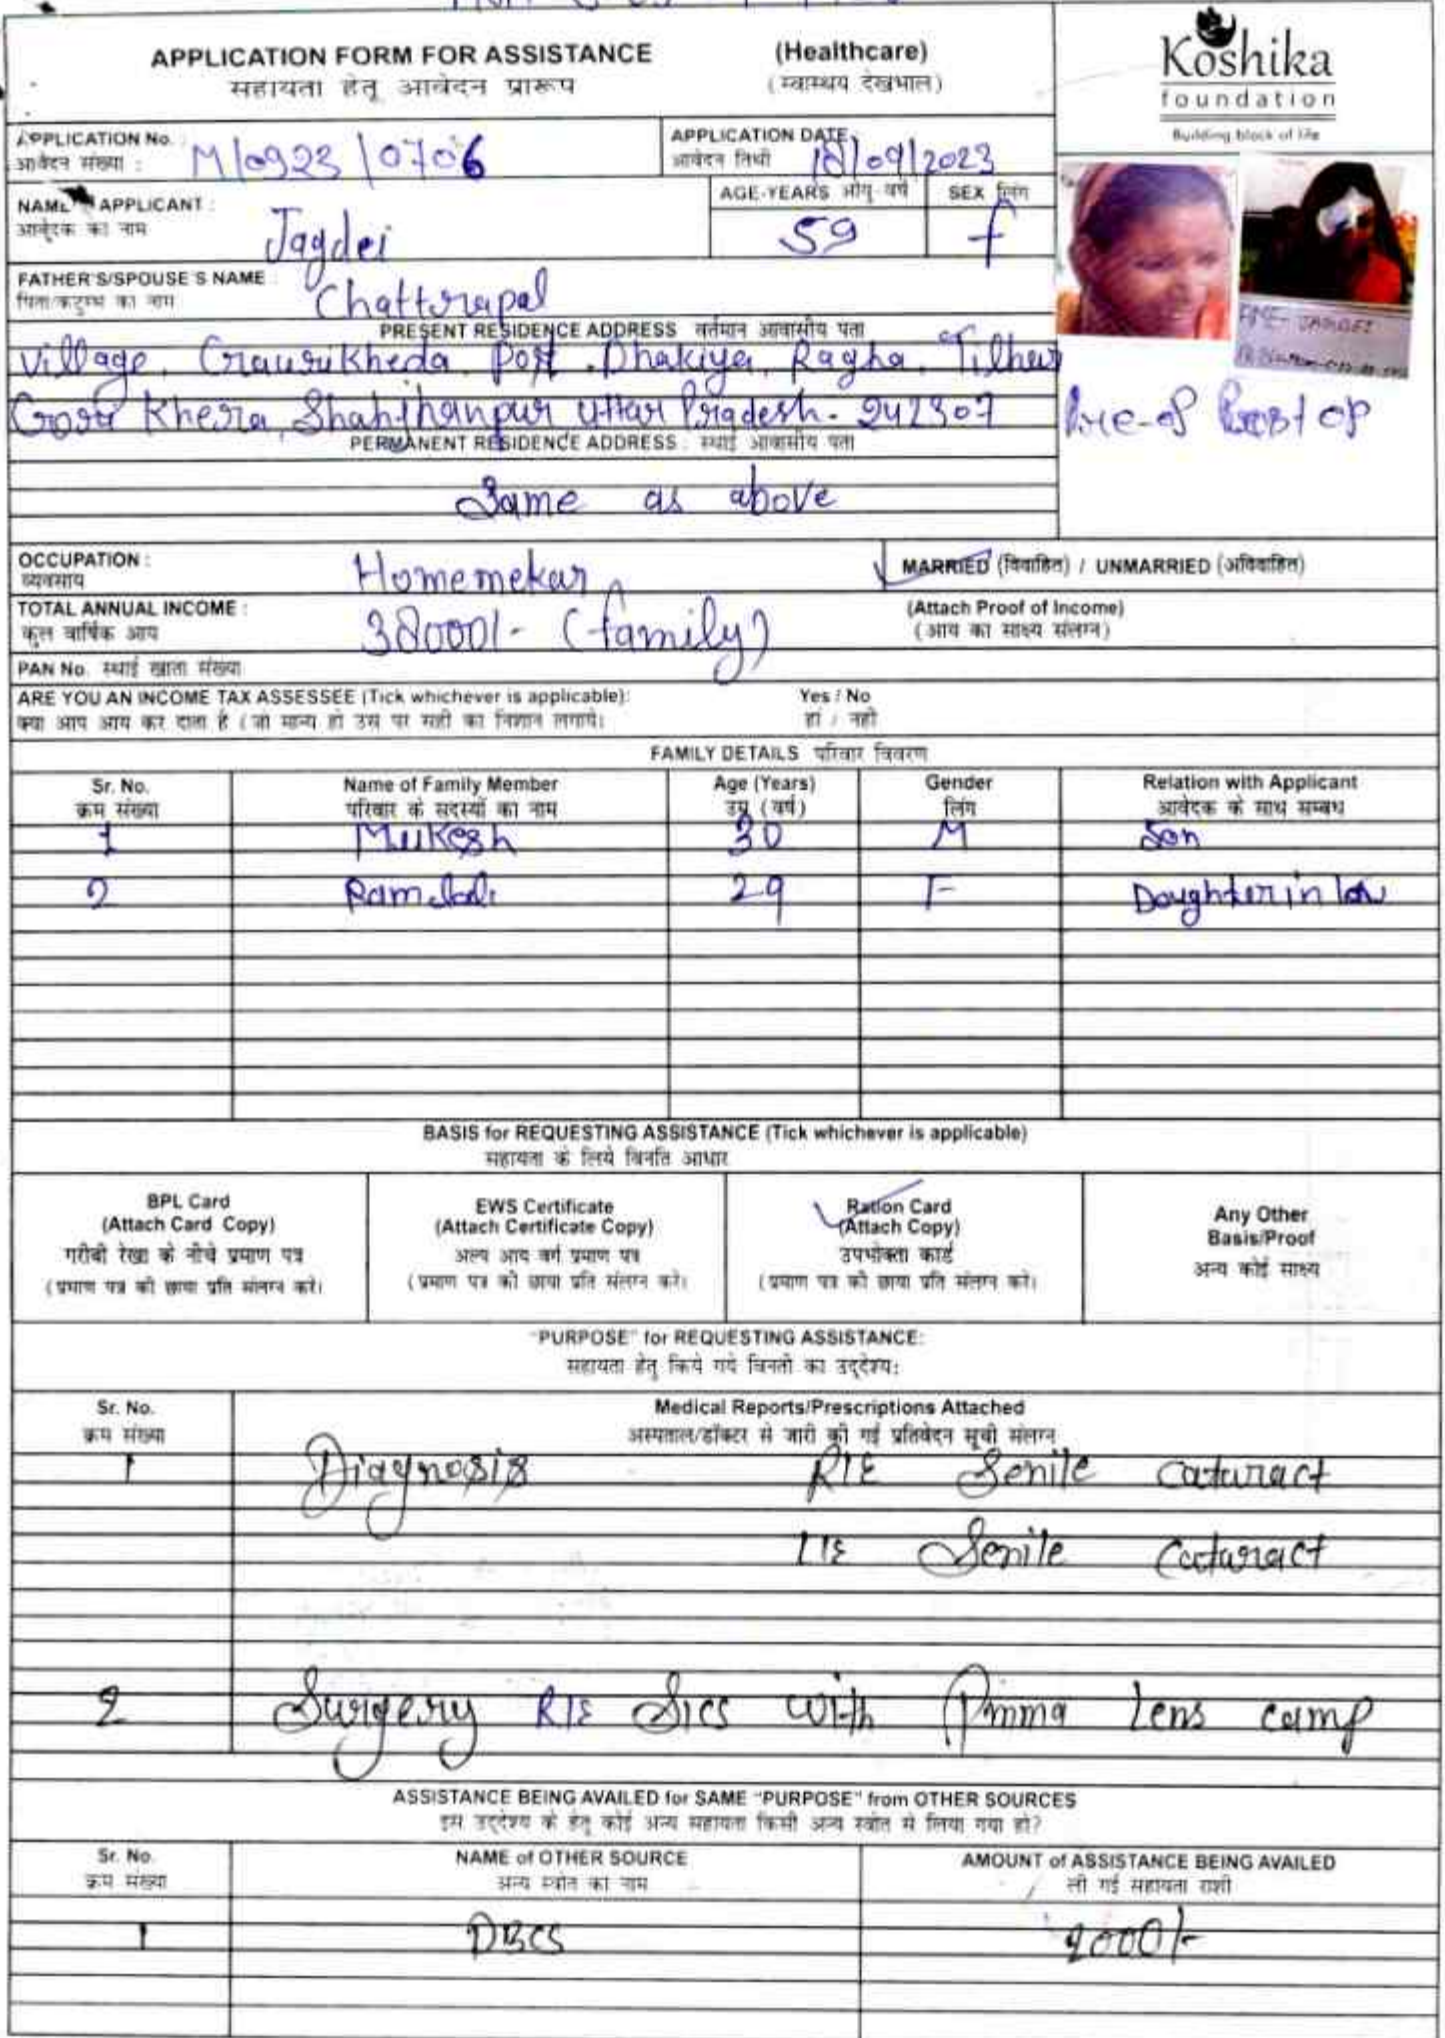 APPLICATION FORM FOR ASSISTANCE (Healthcare)
सहायता हेतू आवेदन प्रारूप (स्वास्थय देखभाल)
Koshika
foundation
Building block of life
APPLICATION No. :
आवेदन संख्या : M/0923/0706
APPLICATION DATE
आवेदन तिथी 18/09/2023
NAME APPLICANT :
आवेदक का नाम Jagdei
AGE-YEARS आयु-वर्ष 59
SEX लिंग f
FATHER'S/SPOUSE'S NAME :
पिता/कटुम्ब का नाम Chattrapal
PRESENT RESIDENCE ADDRESS वर्तमान आवासीय पता
Village, Graurikheda Post. Dhakiya, Ragha, Tilhar
Gora Khera, Shahjhanpur Uttar Pradesh- 242307
Pre-op Post op
PERMANENT RESIDENCE ADDRESS : स्थाई आवासीय पता
Same as above
OCCUPATION :
व्यवसाय Homemekar
MARRIED (विवाहित) / UNMARRIED (अविवाहित)
TOTAL ANNUAL INCOME :
कुल वार्षिक आय 38000/- (family)
(Attach Proof of Income)
(आय का साक्ष्य संलग्न)
PAN No. स्थाई खाता संख्या
ARE YOU AN INCOME TAX ASSESSEE (Tick whichever is applicable): Yes / No
क्या आप आय कर दाता है (जो मान्य हो उस पर सही का निशान लगाये। हां / नहीं
FAMILY DETAILS परिवार विवरण
Sr. No. Name of Family Member Age (Years) Gender Relation with Applicant
क्रम संख्या परिवार के सदस्यों का नाम उम्र (वर्ष) लिंग आवेदक के साथ सम्बध
1 Mukesh 30 M Son
2 29 F Doughter in law
BASIS for REQUESTING ASSISTANCE (Tick whichever is applicable)
सहायता के लिये विनति आधार
BPL Card
(Attach Card Copy)
गरीबी रेखा के नीचे प्रमाण पत्र
(प्रमाण पत्र की छाया प्रति संलग्न करें।
EWS Certificate
(Attach Certificate Copy)
अल्प आय वर्ग प्रमाण पत्र
(प्रमाण पत्र की छाया प्रति संलग्न करे।
Ration Card
(Attach Copy)
उपभोक्ता कार्ड
(प्रमाण पत्र की छाया प्रति संलग्न करे।
Any Other
Basis/Proof
अन्य कोई साक्ष्य
"PURPOSE" for REQUESTING ASSISTANCE:
सहायता हेतु किये गये विनती का उद्देश्य:
Sr. No. Medical Reports/Prescriptions Attached
क्रम संख्या अस्पताल/डॉक्टर से जारी की गई प्रतिवेदन सूची संलग्न
1 Diagnosis R/E Senile Cataract
L/E Senile Cataract
2 Surgery R/E Sics with Pmma Lens camp
ASSISTANCE BEING AVAILED for SAME "PURPOSE" from OTHER SOURCES
इस उद्देश्य के हेतु कोई अन्य सहायता किसी अन्य स्त्रोत से लिया गया हो?
Sr. No. NAME of OTHER SOURCE AMOUNT of ASSISTANCE BEING AVAILED
क्रम संख्या अन्य स्त्रोत का नाम ली गई सहायता राशी
1 DBCS 2000/-